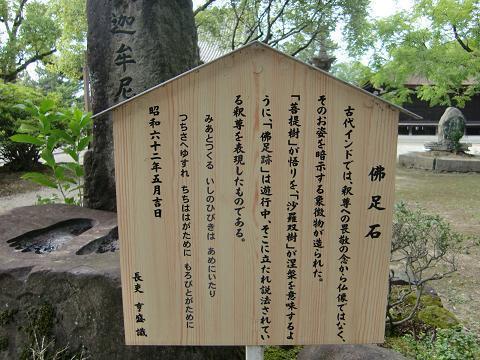 佛足石
古代インドでは、釈尊への畏敬の念から仏像ではなく、
そのお姿を暗示する象徴物が造られた。
「菩提樹」が悟りを、「沙羅双樹」が涅槃を意味するよ
うに、「佛足跡」は遊行中、そこに立たれ説法されてい
る釈尊を表現したものである。
みあとつくる いしのひびきは あめにいたり
つちさへゆすれ ちちははがために もろびとがために
昭和六十二年五月吉日
長吏 亨盛 識
迦牟尼